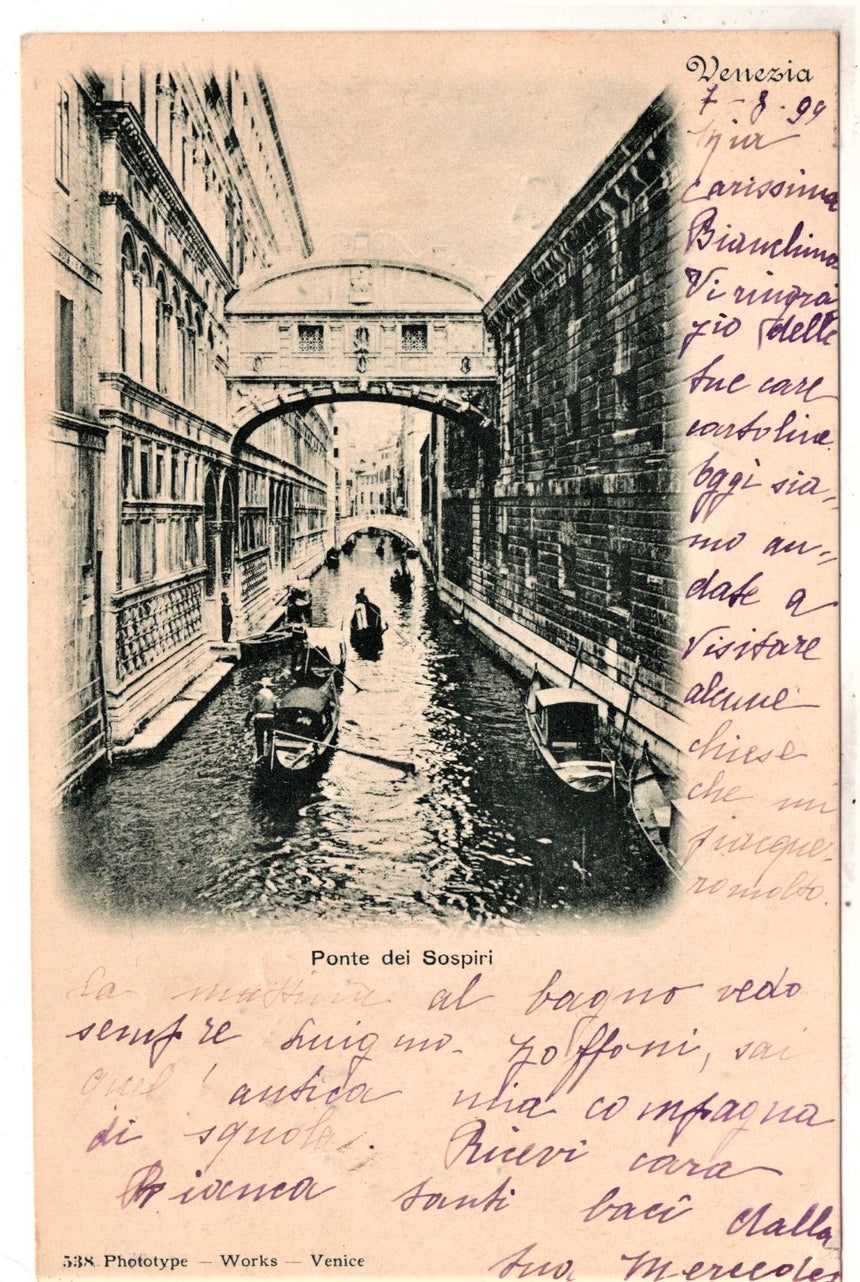 Venezia
7-8-99
Mia
carissima
Bianchina
Vi ringra
zio delle
tue care
cartoline
Oggi sia,,
mo an,,
date a
visitare
alcune
chiese
che mi
piacque-
ro molto.
Ponte dei Sospiri
La mattina al bagno vedo
sempre Zoffoni, sai
quel' antica mia compagna
di squola. Ricevi cara
Bianca tanti baci dalla
tua Mercedes
538 Phototype — Works — Venice